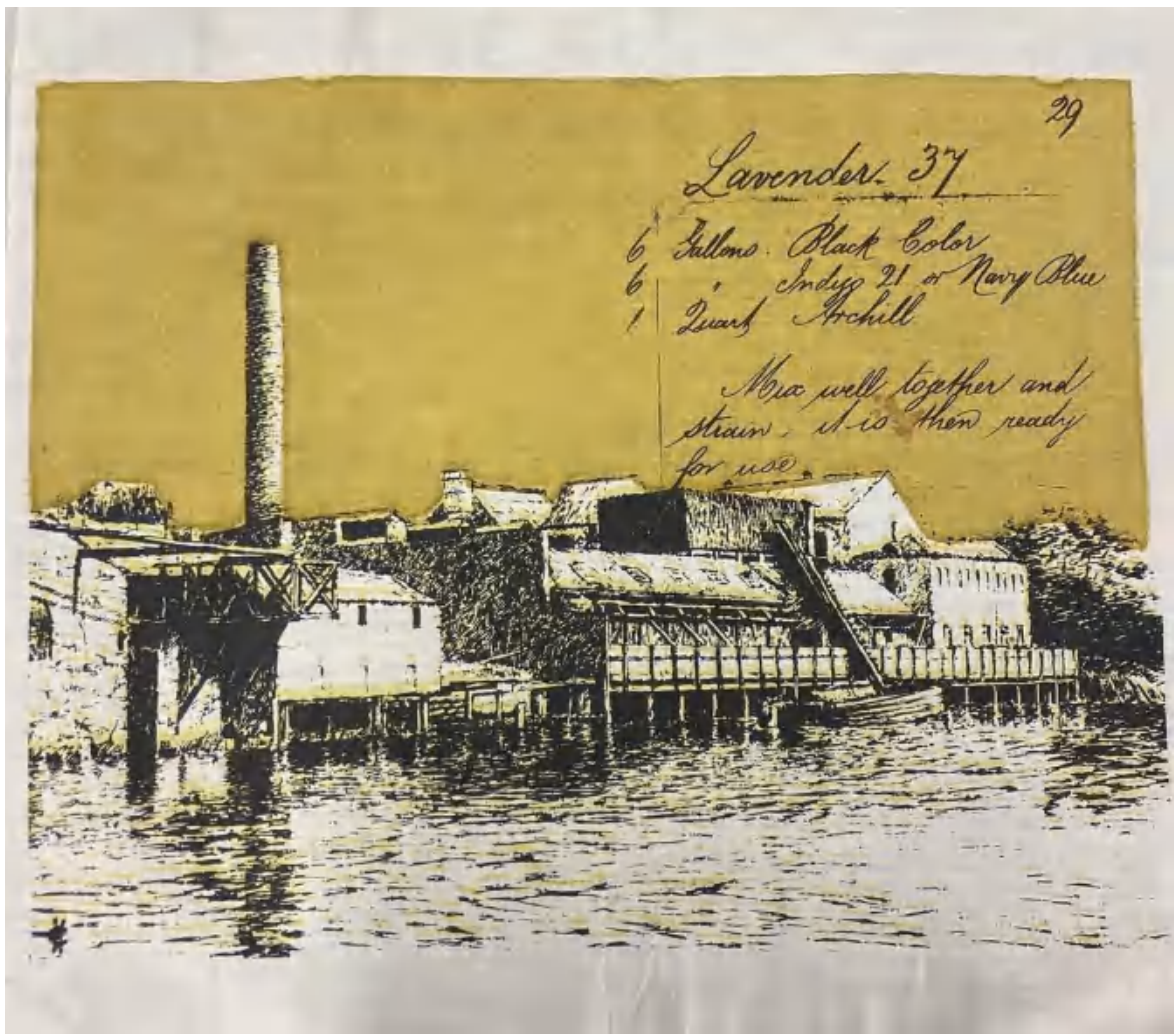 29
Lavender. 37
6 Gallons. Black Color
6 " Indygo 21 or Navy Blue
1 Quart Archill
Mix well together and
strain. it is then ready
for use.